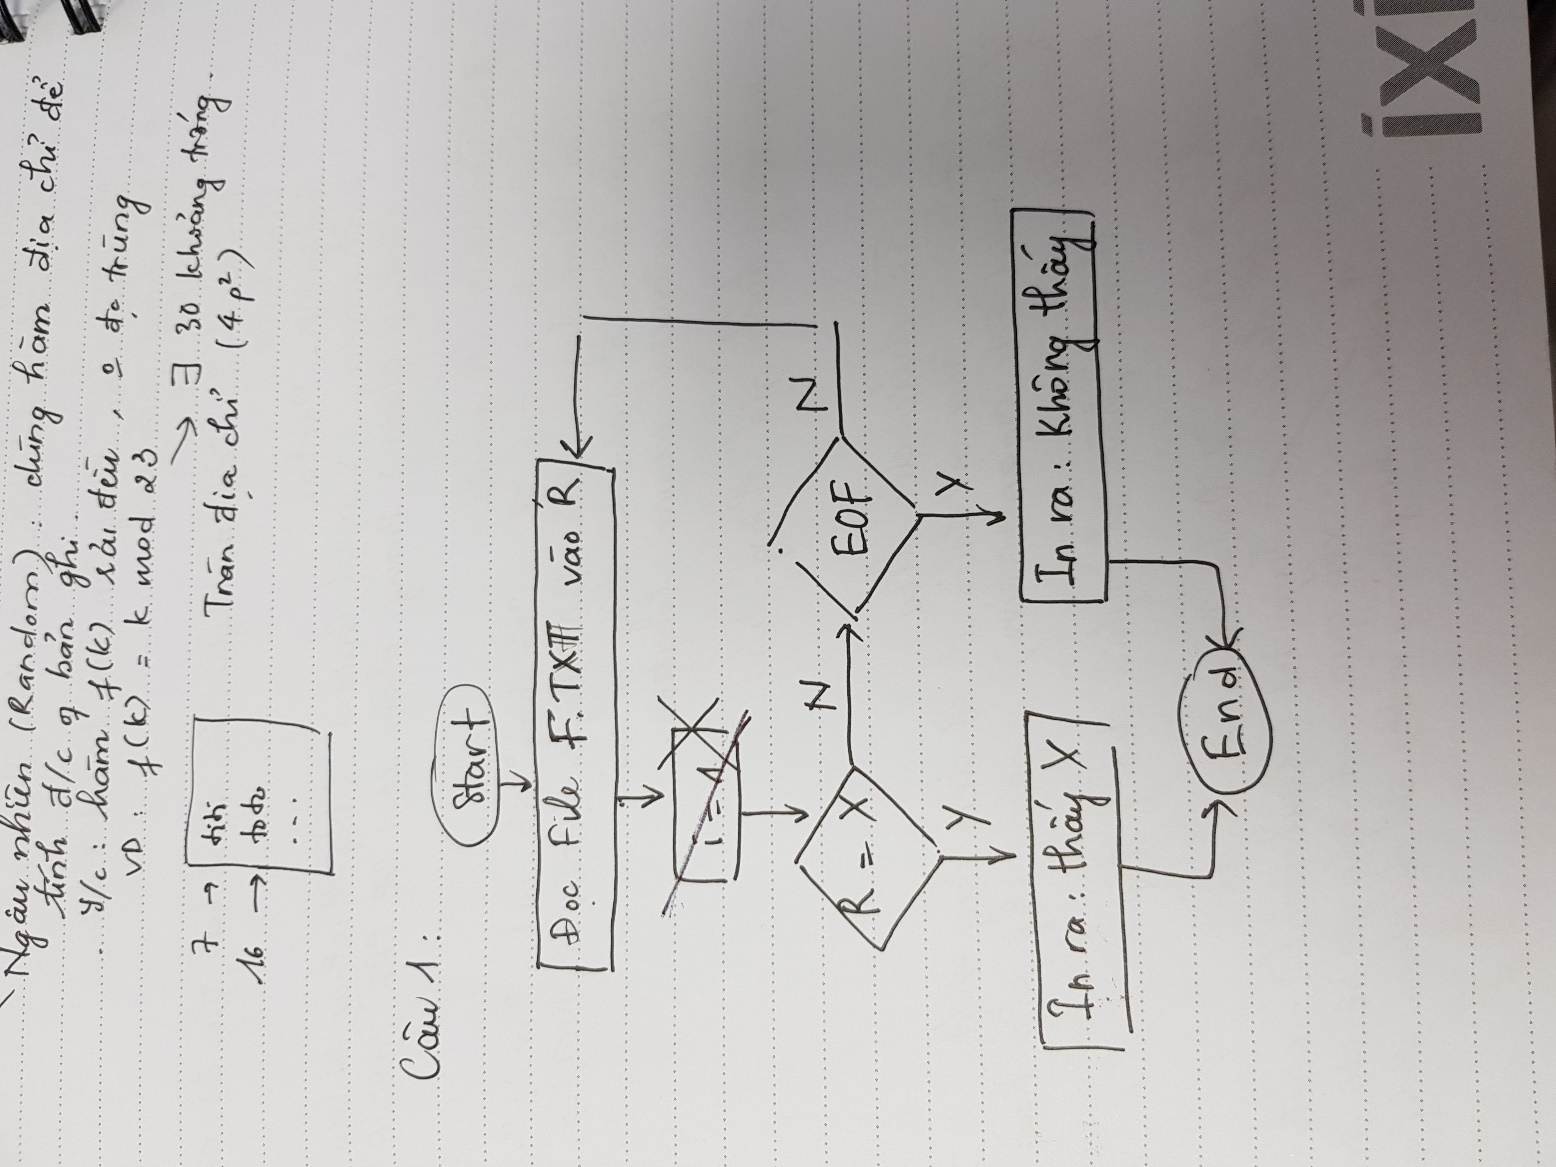 Ngẫu nhiên (Random): dùng hàm địa chỉ để
tính đ/c of bản ghi.
y/c: hàm f(k) rải đều, o đc trùng
VD: f(k) = k mod 23
→ ∃ 30 khoảng trống.
Tràn địa chỉ (4.p²)
7 → titi
16 → toto
...
Câu 1:
Start
Đọc file F.TXT vào R
i = 1
R = X
N
EOF
N
Y
Y
In ra: thấy X
In ra: Không thấy
End
ixi